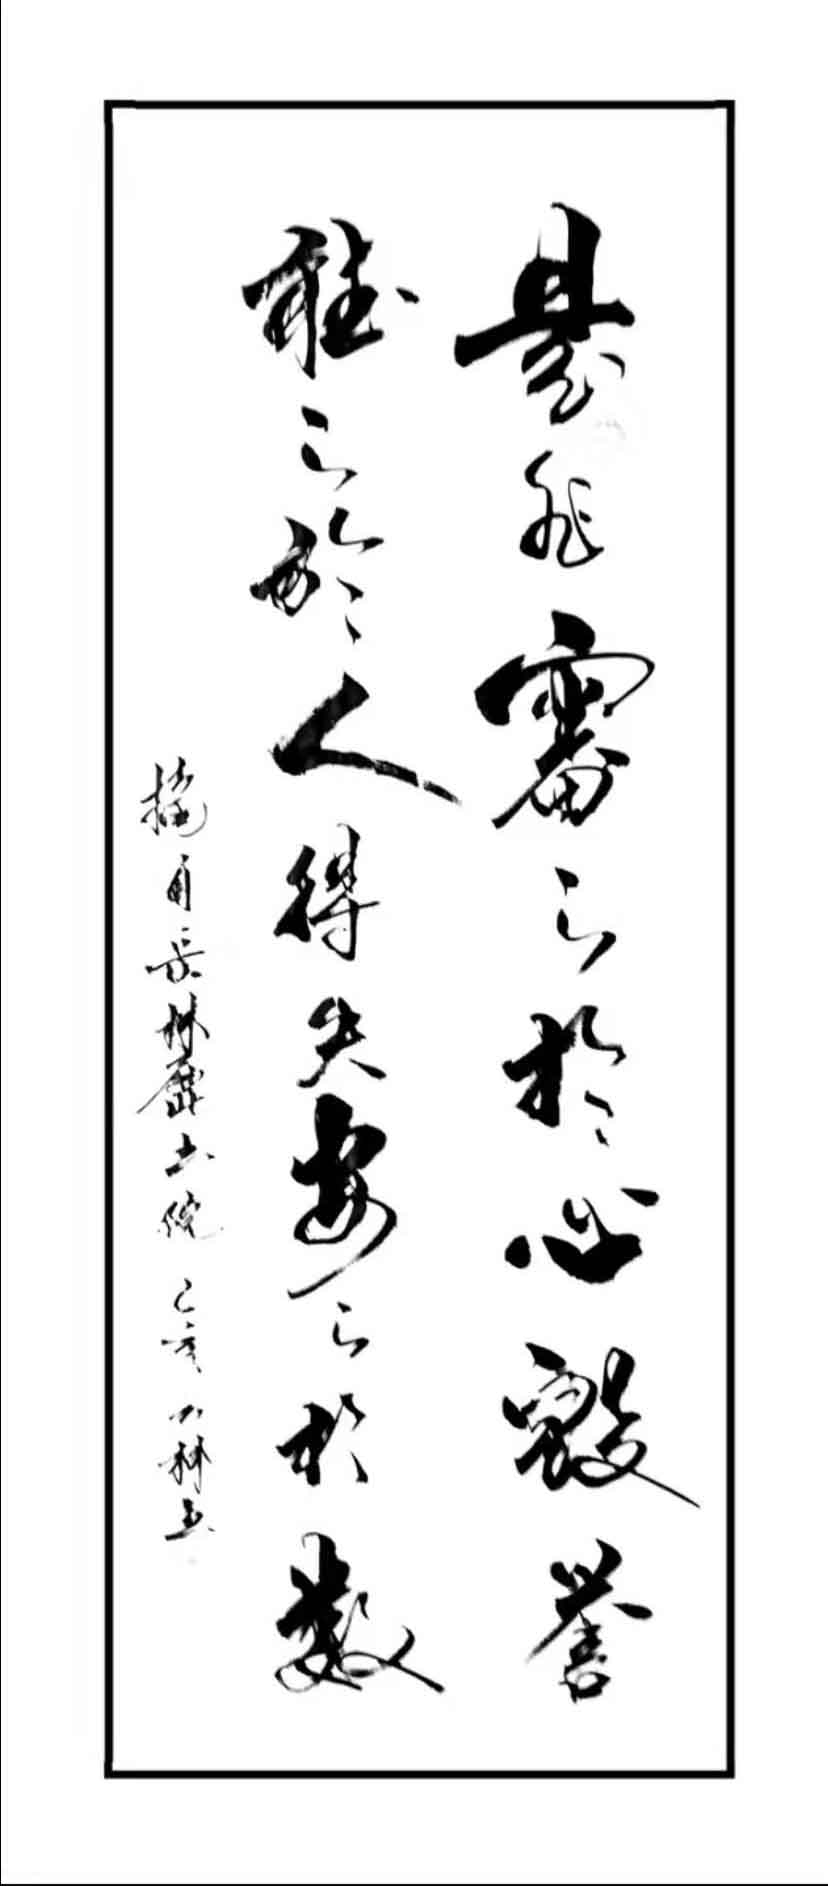 是非審之於心毀譽
聽之於人得失安之於數
摘自岳林麓書院 己亥 林